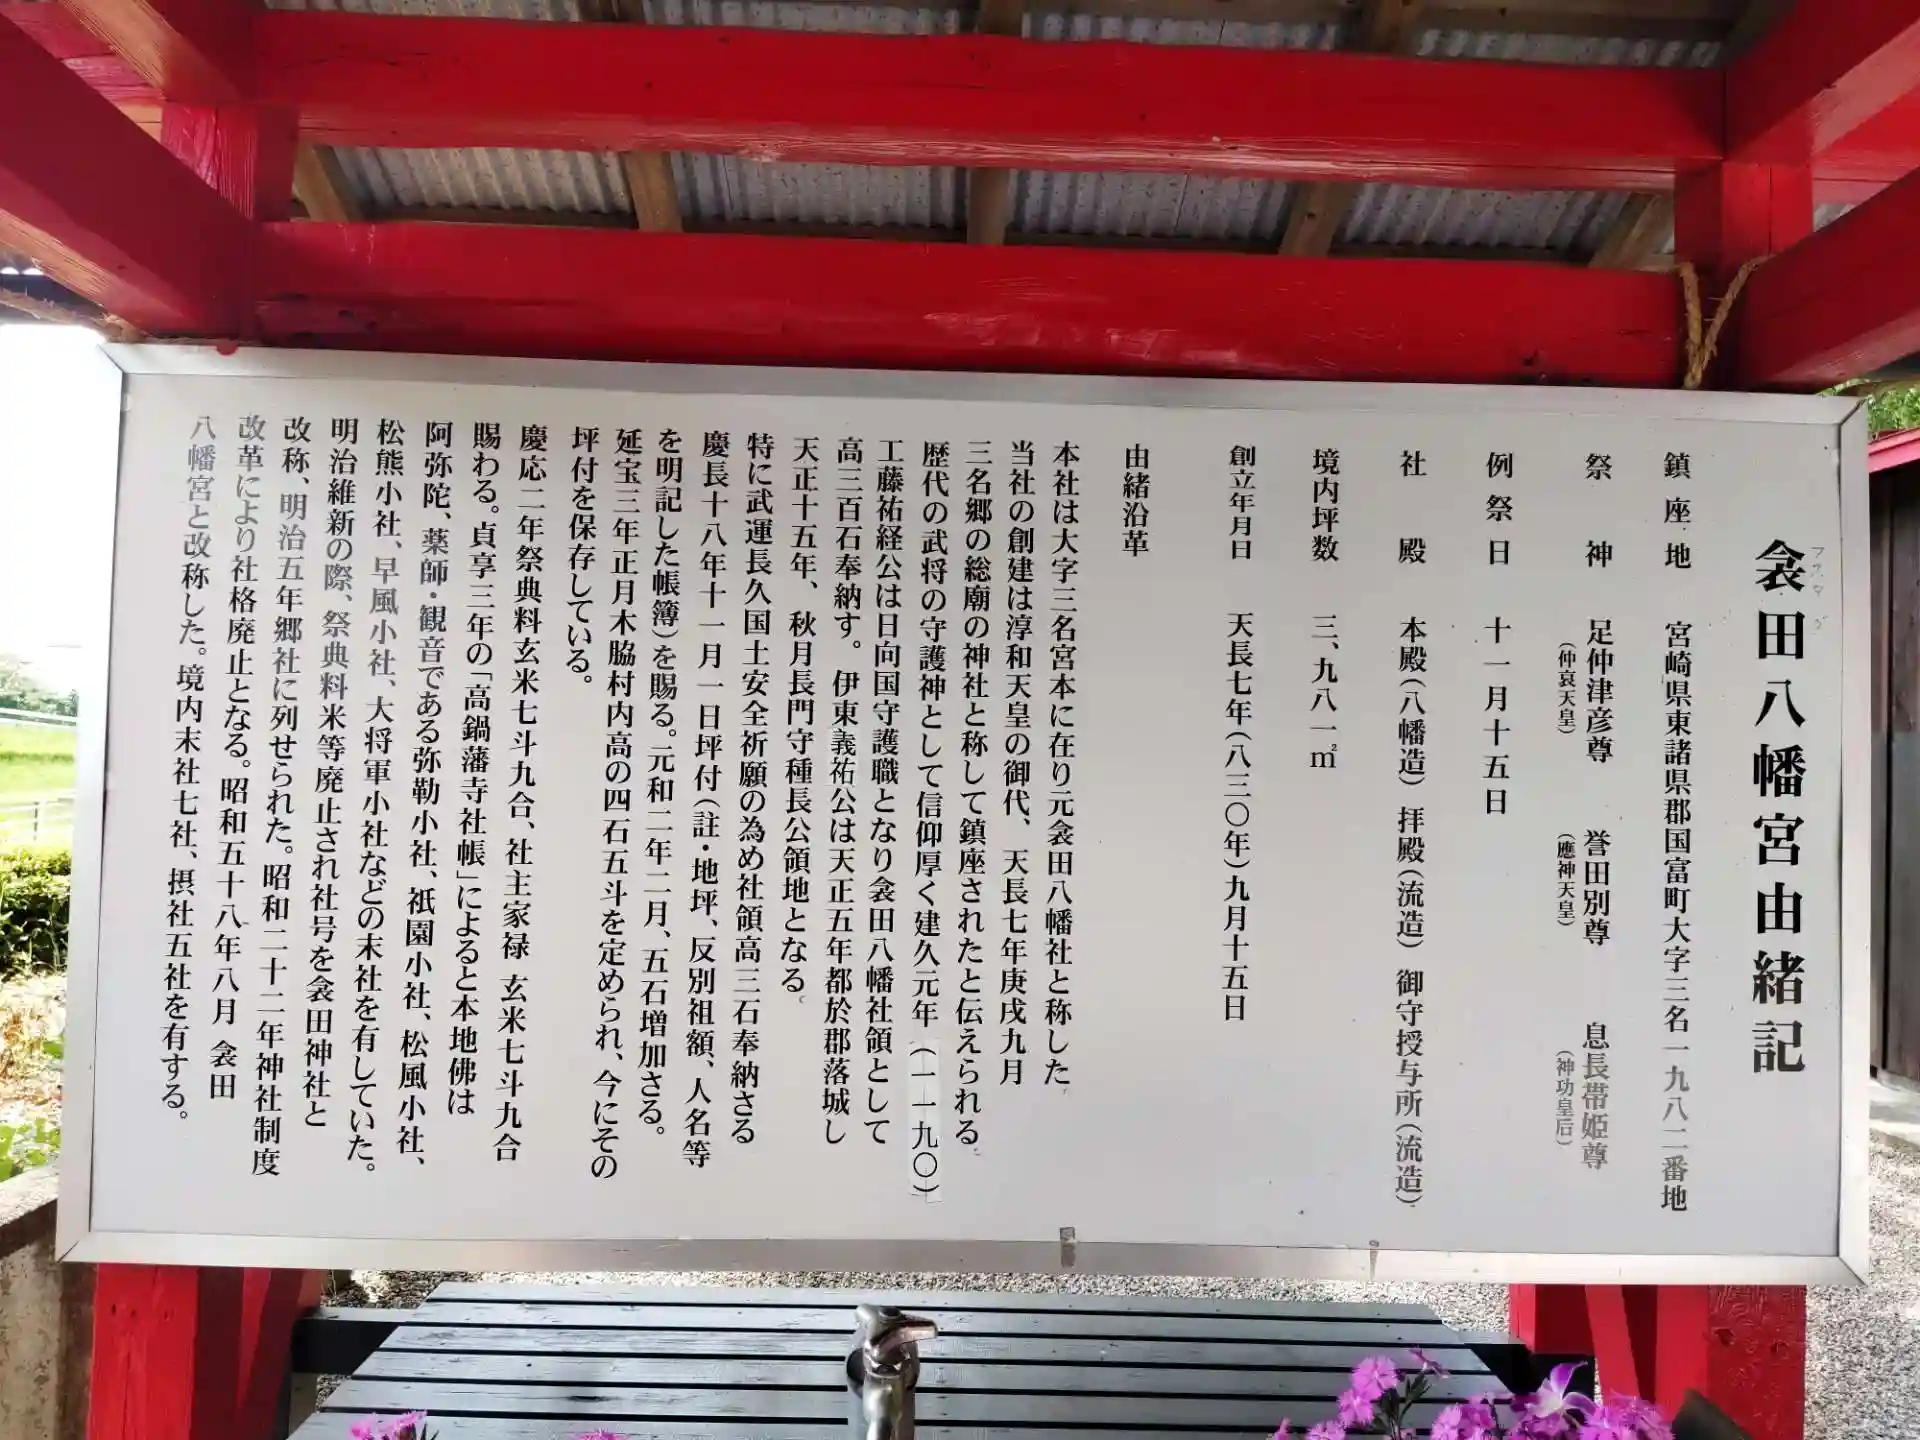 衾田八幡宮由緒記
フスマダ
鎮座地　宮崎県東諸県郡国富町大字三名一九八二番地
祭神　足仲津彦尊　誉田別尊　息長帯姫尊
（仲哀天皇）　（應神天皇）　（神功皇后）
例祭日　十一月十五日
社殿　本殿（八幡造）　拝殿（流造）　御守授与所（流造）
境内坪数　三、九八一㎡
創立年月日　天長七年（八三〇年）九月十五日
由緒沿革
本社は大字三名宮本に在り元衾田八幡社と称した。
当社の創建は淳和天皇の御代、天長七年庚戌九月
三名郷の総廟の神社と称して鎮座されたと伝えられる。
歴代の武将の守護神として信仰厚く建久元年（一一九〇）
工藤祐経公は日向国守護職となり衾田八幡社領として
高三百石奉納す。伊東義祐公は天正五年都於郡落城し
天正十五年、秋月長門守種長公領地となる。
特に武運長久国土安全祈願の為め社領高三石奉納さる
慶長十八年十一月一日坪付（註・地坪、反別祖額、人名等
を明記した帳簿）を賜る。元和二年二月、五石増加さる。
延宝三年正月木脇村内高の四石五斗を定められ、今にその
坪付を保存している。
慶応二年祭典料玄米七斗九合、社主家禄　玄米七斗九合
賜わる。貞享三年の「高鍋藩寺社帳」によると本地佛は
阿弥陀、薬師・観音である弥勒小社、祇園小社、松風小社、
松熊小社、早風小社、大将軍小社などの末社を有していた。
明治維新の際、祭典料米等廃止され社号を衾田神社と
改称、明治五年郷社に列せられた。昭和二十二年神社制度
改革により社格廃止となる。昭和五十八年八月　衾田
八幡宮と改称した。境内末社七社、摂社五社を有する。